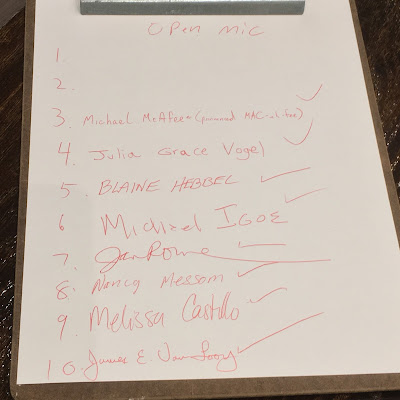 Open mic
1.
2.
3. Michael McAfee (pronounced MAC-uh-fee)
4. Julia Grace Vogel
5. BLAINE HEBBEL
6 Michael IGOE
7. Jan Rowe
8. Nancy Messom
9. Melissa Castillo
10. James E Van Looy